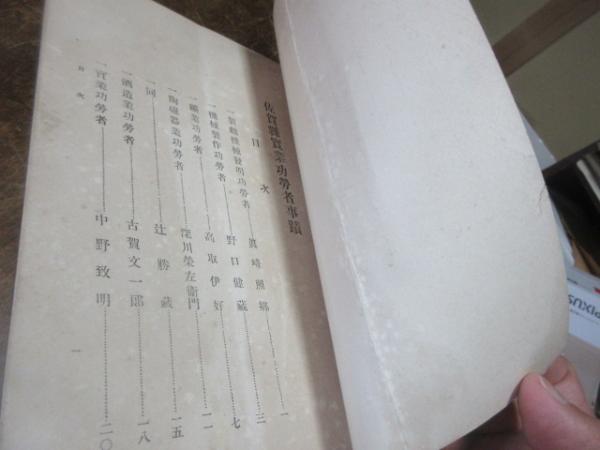 佐賀縣實業功勞者事蹟
目次
一製麵機械發明功勞者 眞崎照鄕 一
一機械製作功勞者 野口健藏 三
一鑛業功勞者 高取伊好 七
一陶磁器業功勞者 深川榮左衞門 一一
一同 辻勝藏 一五
一酒造業功勞者 古賀文一郞 一八
一實業功勞者 中野致明 二〇
目次 一
PIXUS